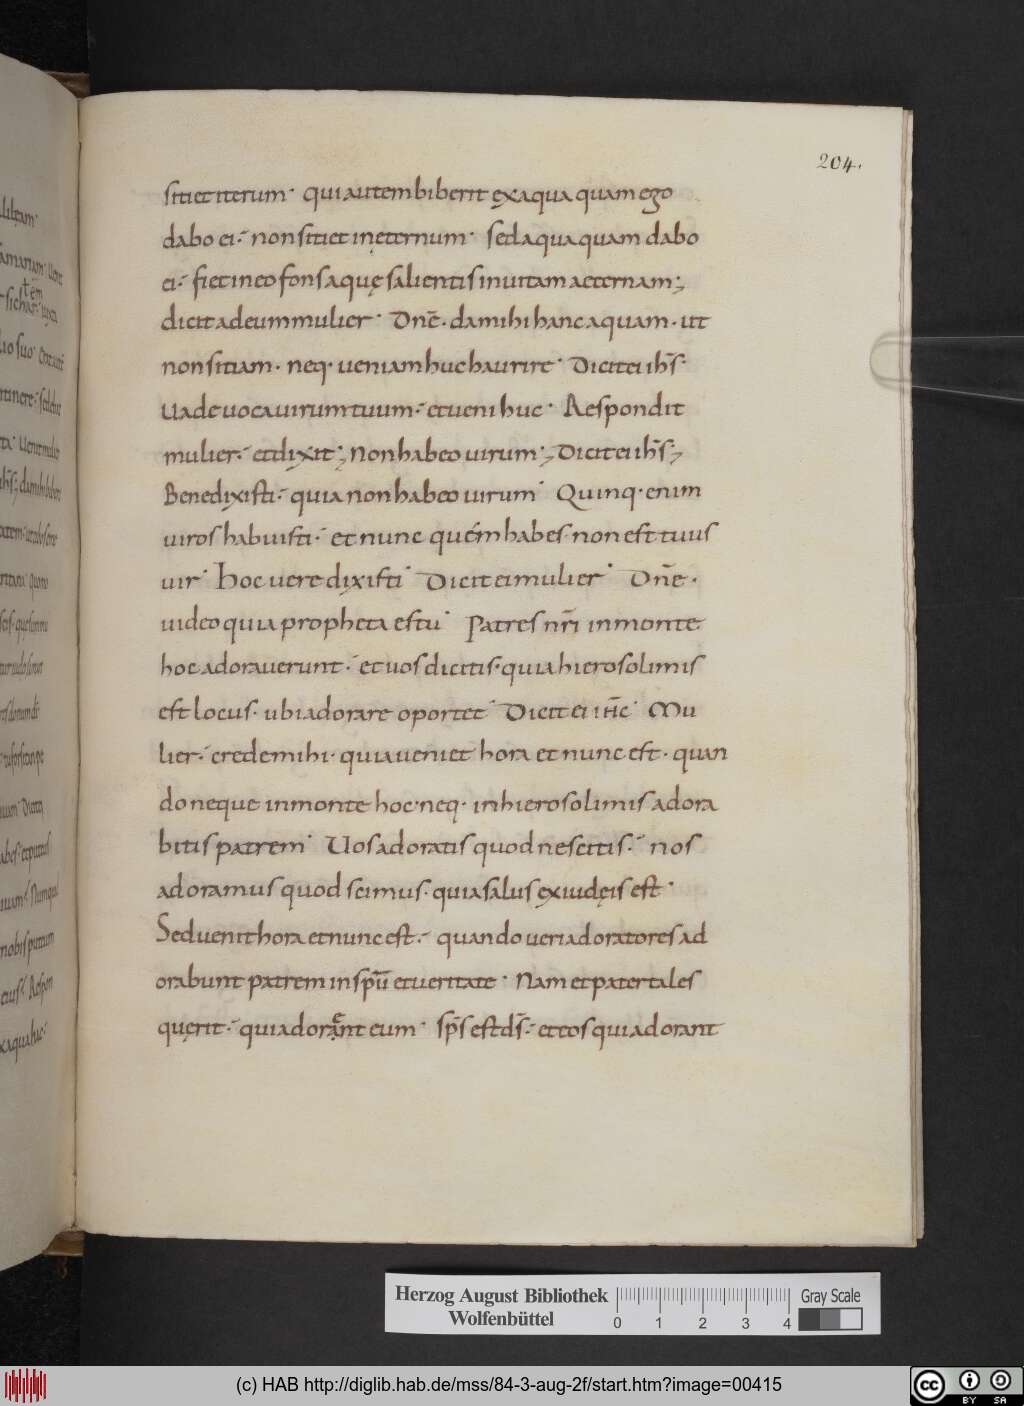 204.
sitiet iterum· qui autem biberit ex aqua quam ego
dabo ei·́ non sitiet in ęternum· sed aqua quam dabo
ei·́ fiet in eo fons aquę salientis in uitam aeternam;
dicit ad eum mulier· Dnē· da mihi hanc aquam· ut
non sitiam· neq· ueniam huc haurire· Dicit ei ihs̄·
Uade uoca uirum tuum·́ et ueni huc· Respondit
mulier·́ et dixit; Non habeo uirum; Dicit ei ihs̄;
Bene dixisti·́ quia non habeo uirum· Quinq· enim
uiros habuisti·́ et nunc quém habes non est tuus
uir· Hoc uere dixisti· Dicit ei mulier· Dn̄e·
uideo quia propheta es tu· Patres nr̄i in monte
hoc adorauerunt·́ et uos dicitis· quia hierosolimis
est locus· ubi adorare oportet· Dicit ei ih̄c· Mu
lier·́ crede mihi· quia ueniet hora et nunc est· quan
do neque in monte hoc· neq· in hierosolimis adora
bitis patrem· Uos adoratis quod nescitis·́ nos
adoramus quod scimus· quia salus ex iudęis est·
Sed uenit hora et nunc est·́ quando ueri adoratores ad
orabunt patrem in spū et ueritate· Nam et pater tales
quęrit·́ qui adorạent eum· sps̄ est ds̄·́ et eos qui adorant
Herzog August Bibliothek
Wolfenbüttel
0 1 2 3 4
Gray Scale
(c) HAB http://diglib.hab.de/mss/84-3-aug-2f/start.htm?image=00415
cc BY SA